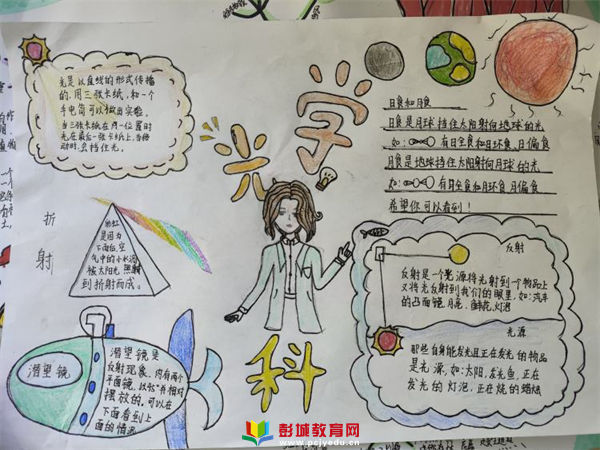 光是以直线的形式传播
的,用三张卡纸,和一个
手电筒可以做出实验。
当三张卡纸在同一位置时
光在最后一张卡纸上,当移
动时,会挡住光。
光
学
科
日食和月食
日食是月球挡住太阳射向地球的光
如: 有日全食和日环食、日偏食
月食是地球挡住太阳射向月球的光
希望你可以看到!
折
射
彩虹
是因为
下雨后,空
气中的小水滴
被太阳光照射
到折射而成。
潜望镜
潜望镜是
反射现象,内有两个
下面看到上
面的情况
反射
反射是一个光源将光射到一个物品上
又将光反射到我们的眼里,如:汽车
的凸面镜、月亮、鲜花、灯泡
光源
那些自身能发光且正在发光的物品
是光源,如:太阳、发光鱼、正在
发光的灯泡,正在烧的蜡烛
彭城教育网
www.pcjyedu.cn